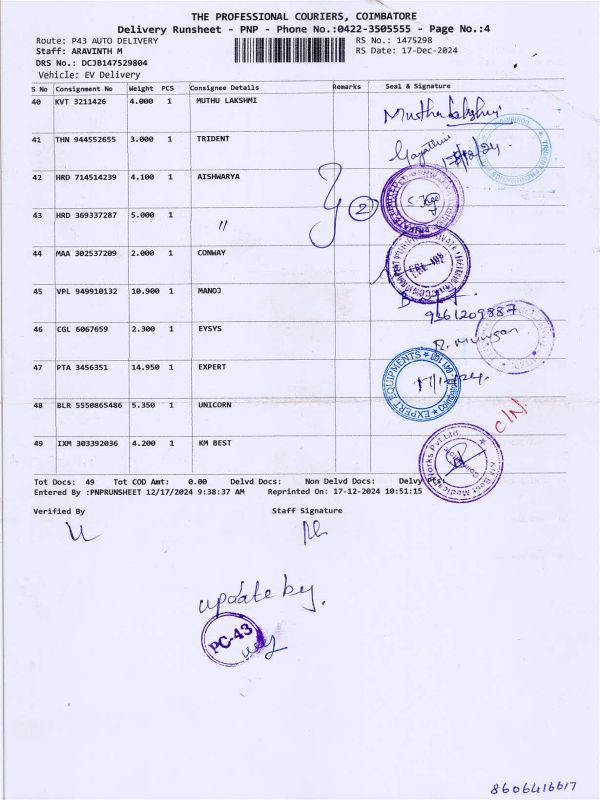 THE PROFESSIONAL COURIERS, COIMBATORE
Delivery Runsheet - PNP - Phone No.:0422-3505555 - Page No.:4
Route: P43 AUTO DELIVERY RS No.: 1475298
Staff: ARAVINTH M RS Date: 17-Dec-2024
DRS No.: DCJB147529804
Vehicle: EV Delivery
S No Consignment No Weight PCS Consignee Details Remarks Seal & Signature
40 KVT 3211426 4.000 1 MUTHU LAKSHMI Muthulakshmi
41 THN 944552655 3.000 1 TRIDENT Gayathri
42 HRD 714514239 4.100 1 AISHWARYA
2
43 HRD 369337287 5.000 1 "
44 MAA 302537209 2.000 1 CONWAY
45 VPL 949910132 10.900 1 MANOJ
9361209887
46 CGL 6067659 2.300 1 EYSYS R. Murugan
47 PTA 3456351 14.950 1 EXPERT EXPERT EQUIPMENTS
48 BLR 5550865486 5.350 1 UNICORN C/N
49 IXM 303392036 4.200 1 KM BEST
Tot Docs: 49 Tot COD Amt: 0.00 Delvd Docs: Non Delvd Docs: Delvy Pts:
Entered By :PNPRUNSHEET 12/17/2024 9:38:37 AM Reprinted On: 17-12-2024 10:51:15
Verified By Staff Signature
update by.
PC-43
8606416617